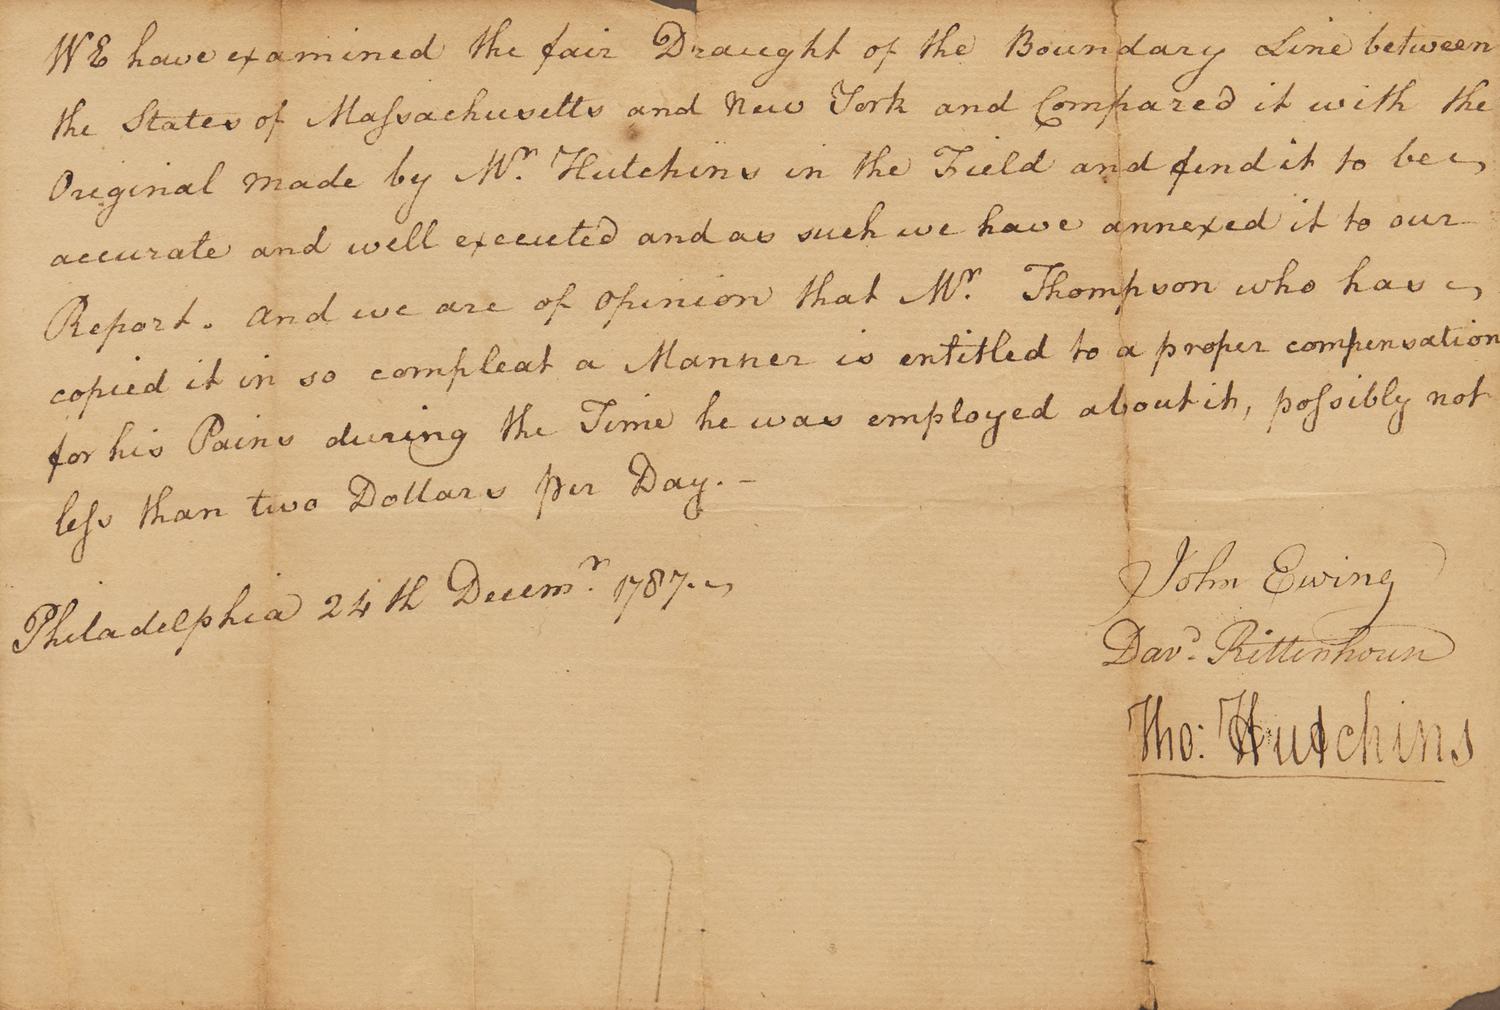 WE have examined the fair Draught of the Boundary Line between
the States of Massachusetts and New York and Compared it with the
Original made by Mr. Hutchins in the Field and find it to be
accurate and well executed and as such we have annexed it to our
Report. And we are of Opinion that Mr. Thompson who has
copied it in so compleat a Manner is entitled to a proper compensation
for his Pains during the Time he was employed about it, possibly not
less than two Dollars per Day. –
Philadelphia 24th Decemr. 1787.
John Ewing
Davd. Rittenhouse
Tho: Hutchins